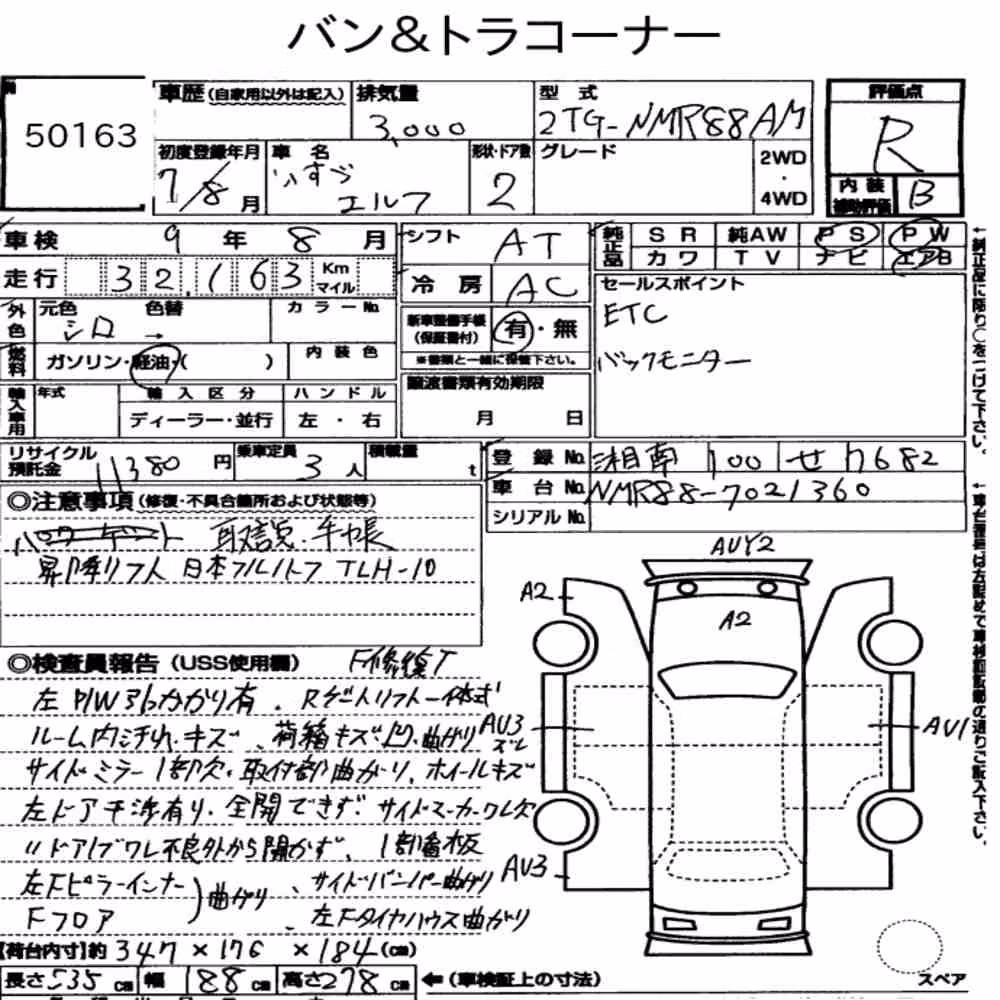 バン&トラコーナー
50163
車歴 (自家用以外は記入)
排気量
3,000
型式
2TG-NMR88AM
評価点
R
初度登録年月
7/8月
車名
いすゞ
エルフ
形状・ドア数
2
グレード
2WD
・
4WD
内装
補助評価
B
車検 9年 8月
シフト AT
純正品
SR 純AW PS PW
カワ TV ナビ エアB
走行 32,163 Km
マイル
冷房 AC
セールスポイント
ETC
バックモニター
外色
元色 色替
シロ →
カラーNo.
新車整備手帳
(保証書付)
有・無
※書類と一緒に保管下さい。
燃料
ガソリン・軽油・( )
内装色
譲渡書類有効期限
月 日
輸入車用
年式
輸入区分
ディーラー・並行
ハンドル
左・右
リサイクル
預託金
11380円
乗車定員
3人
積載量
t
登録No. 湘南 100 せ 7682
車台No. NMR88-7021360
シリアルNo.
◎注意事項(修復・不具合箇所および状態等)
取説、手帳
昇降リフト 日本フルハーフ TLH-10
◎検査員報告 (USS使用欄)
F修復T
左P/Wアトひっかかり有、Rゲートリフト一体式
ルーム内汚れ、キズ、荷箱キズ凹、曲がり
サイドミラー1部欠、取付部曲がり、ホイールキズ
左ドア干渉有り、全開できず、サイドマーカーワレ欠
〃ドアノブワレ不良外から開かず、1部看板
左Fピラーインナー
Fフロア
曲がり
、サイドバンパー曲がり
、左Fタイヤハウス曲がり
【荷台内寸】約 347×176×184(cm)
長さ535cm 幅188cm 高さ278cm
←(車検証上の寸法)
AUY2
A2
A2
AU3
ズレ
AU1
AU3
スペア
↑純正品に限り○をつけて下さい。
↑車台番号は方認めて車検証記載の通りご記入下さい。